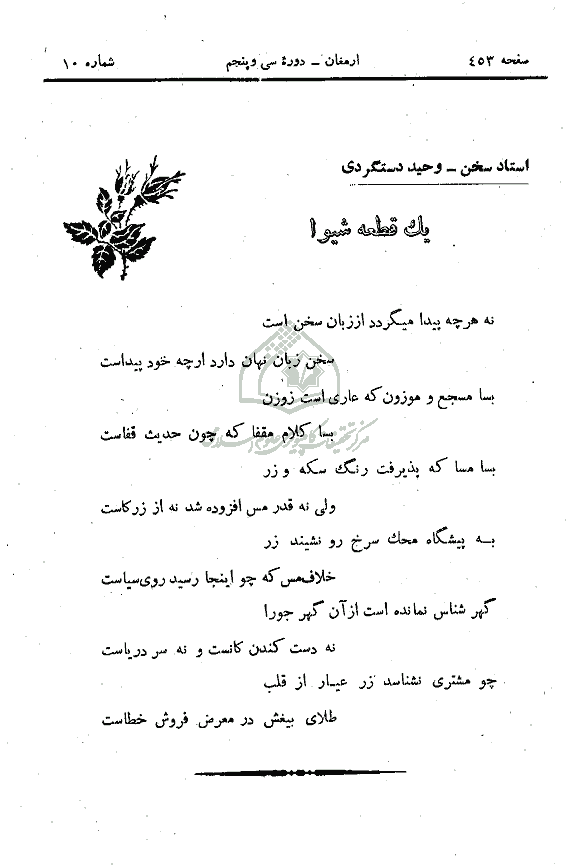 صفحه ۴۵۳ ارمغان ـ دورهٔ سی و پنجم شماره ۱۰
استاد سخن ـ وحید دستگردی
یك قطعه شیوا
نه هرچه پیدا میگردد از زبان سخن است
سخن زبان نهان دارد ارچه خود پیداست
بسا مسجع و موزون که عاری است زوزن
بسا کلام مقفا که چون حدیث قفاست
بسا مسا که پذیرفت رنگ سکه و زر
ولی نه قدر مس افزوده شد نه از زرکاست
به پیشگاه محك سرخ رو نشیند زر
خلاف مس که چو اینجا رسید روی سیاست
گهر شناس نمانده است از آن گهر جورا
نه دست کندن کانست و نه سر دریاست
چو مشتری نشناسد زر عیار از قلب
طلای بیغش در معرض فروش خطاست